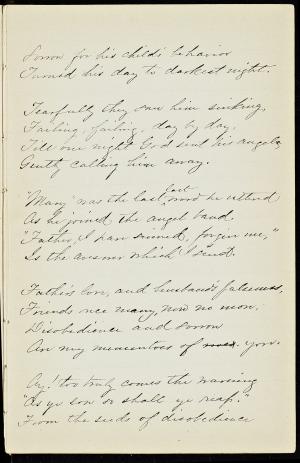 Sorrow for his child's behavior
Turned his day to darkest night.
Tearfully they saw him sinking,
Failing, failing, day by day,
Till one night God sent his angels,
Gently calling him away.
"Mary" was the last word he uttered
As he joined the angel band.
"Father, I have sinned, forgive me,"
Is the answer which I send.
Father's love, and husband's
Friends once many, now no more,
Disobedience and sorrow
Are my mementoes of yore.
Ay! too truly comes the warning
"As ye sow so shall ye reap."
From the seeds of disobedience